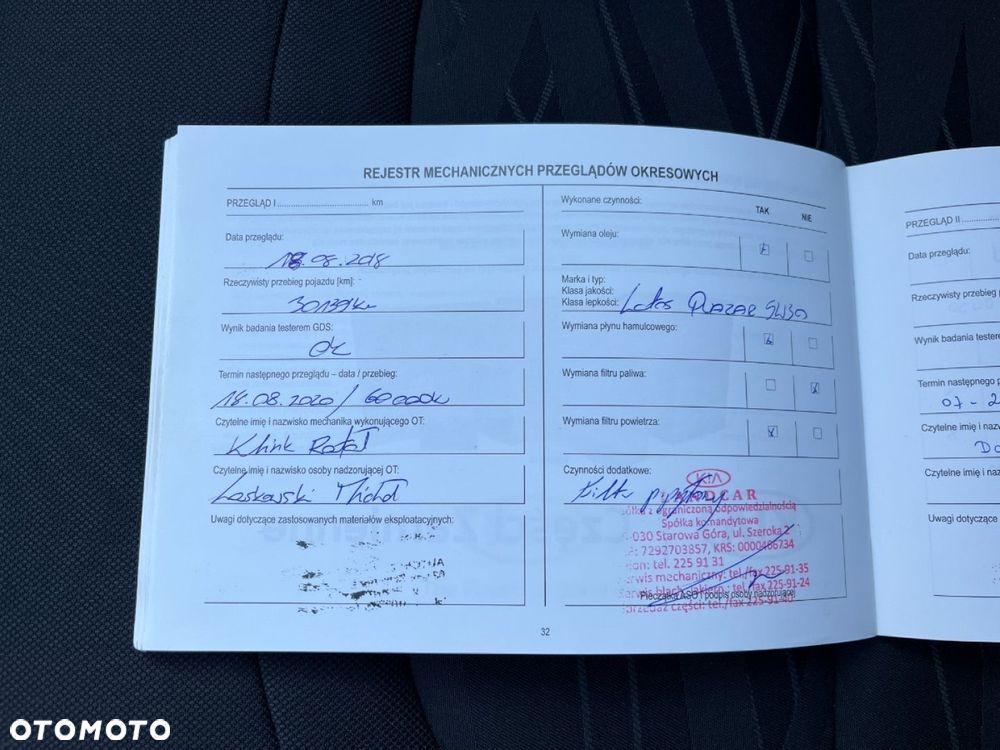 REJESTR MECHANICZNYCH PRZEGLĄDÓW OKRESOWYCH
PRZEGLĄD I .................................... km
Data przeglądu:
18.08.2018
Rzeczywisty przebieg pojazdu [km]:
30139km
Wynik badania testerem GDS:
OK
Termin następnego przeglądu – data / przebieg:
18.08.2020 / 60 000k
Czytelne imię i nazwisko mechanika wykonującego OT:
Klink Rafał
Czytelne imię i nazwisko osoby nadzorującej OT:
Laskowski Michał
Uwagi dotyczące zastosowanych materiałów eksploatacyjnych:
Wykonane czynności:
TAK NIE
Wymiana oleju:
Marka i typ:
Klasa jakości:
Klasa lepkości:
Lotos QUAZAR 5W30
Wymiana płynu hamulcowego:
Wymiana filtru paliwa:
Wymiana filtru powietrza:
Czynności dodatkowe:
Filtr pyłkowy
KIA
CAR
z ograniczoną odpowiedzialnością
Spółka komandytowa
030 Starowa Góra, ul. Szeroka 2
7292703857, KRS: 0000466734
tel. 225 91 31
mechaniczny: tel./fax 225-91-35
tel./fax 225-91-24
części: tel./fax 225-91-40
Pieczątka ASO i podpis osoby nadzorującej
32
PRZEGLĄD II ..............
Data przeglądu:
Rzeczywisty przebieg
Wynik badania
Termin następnego
07 - 2
Czytelne imię i
Czytelne imię i
Uwagi dotyczące
OTOMOTO